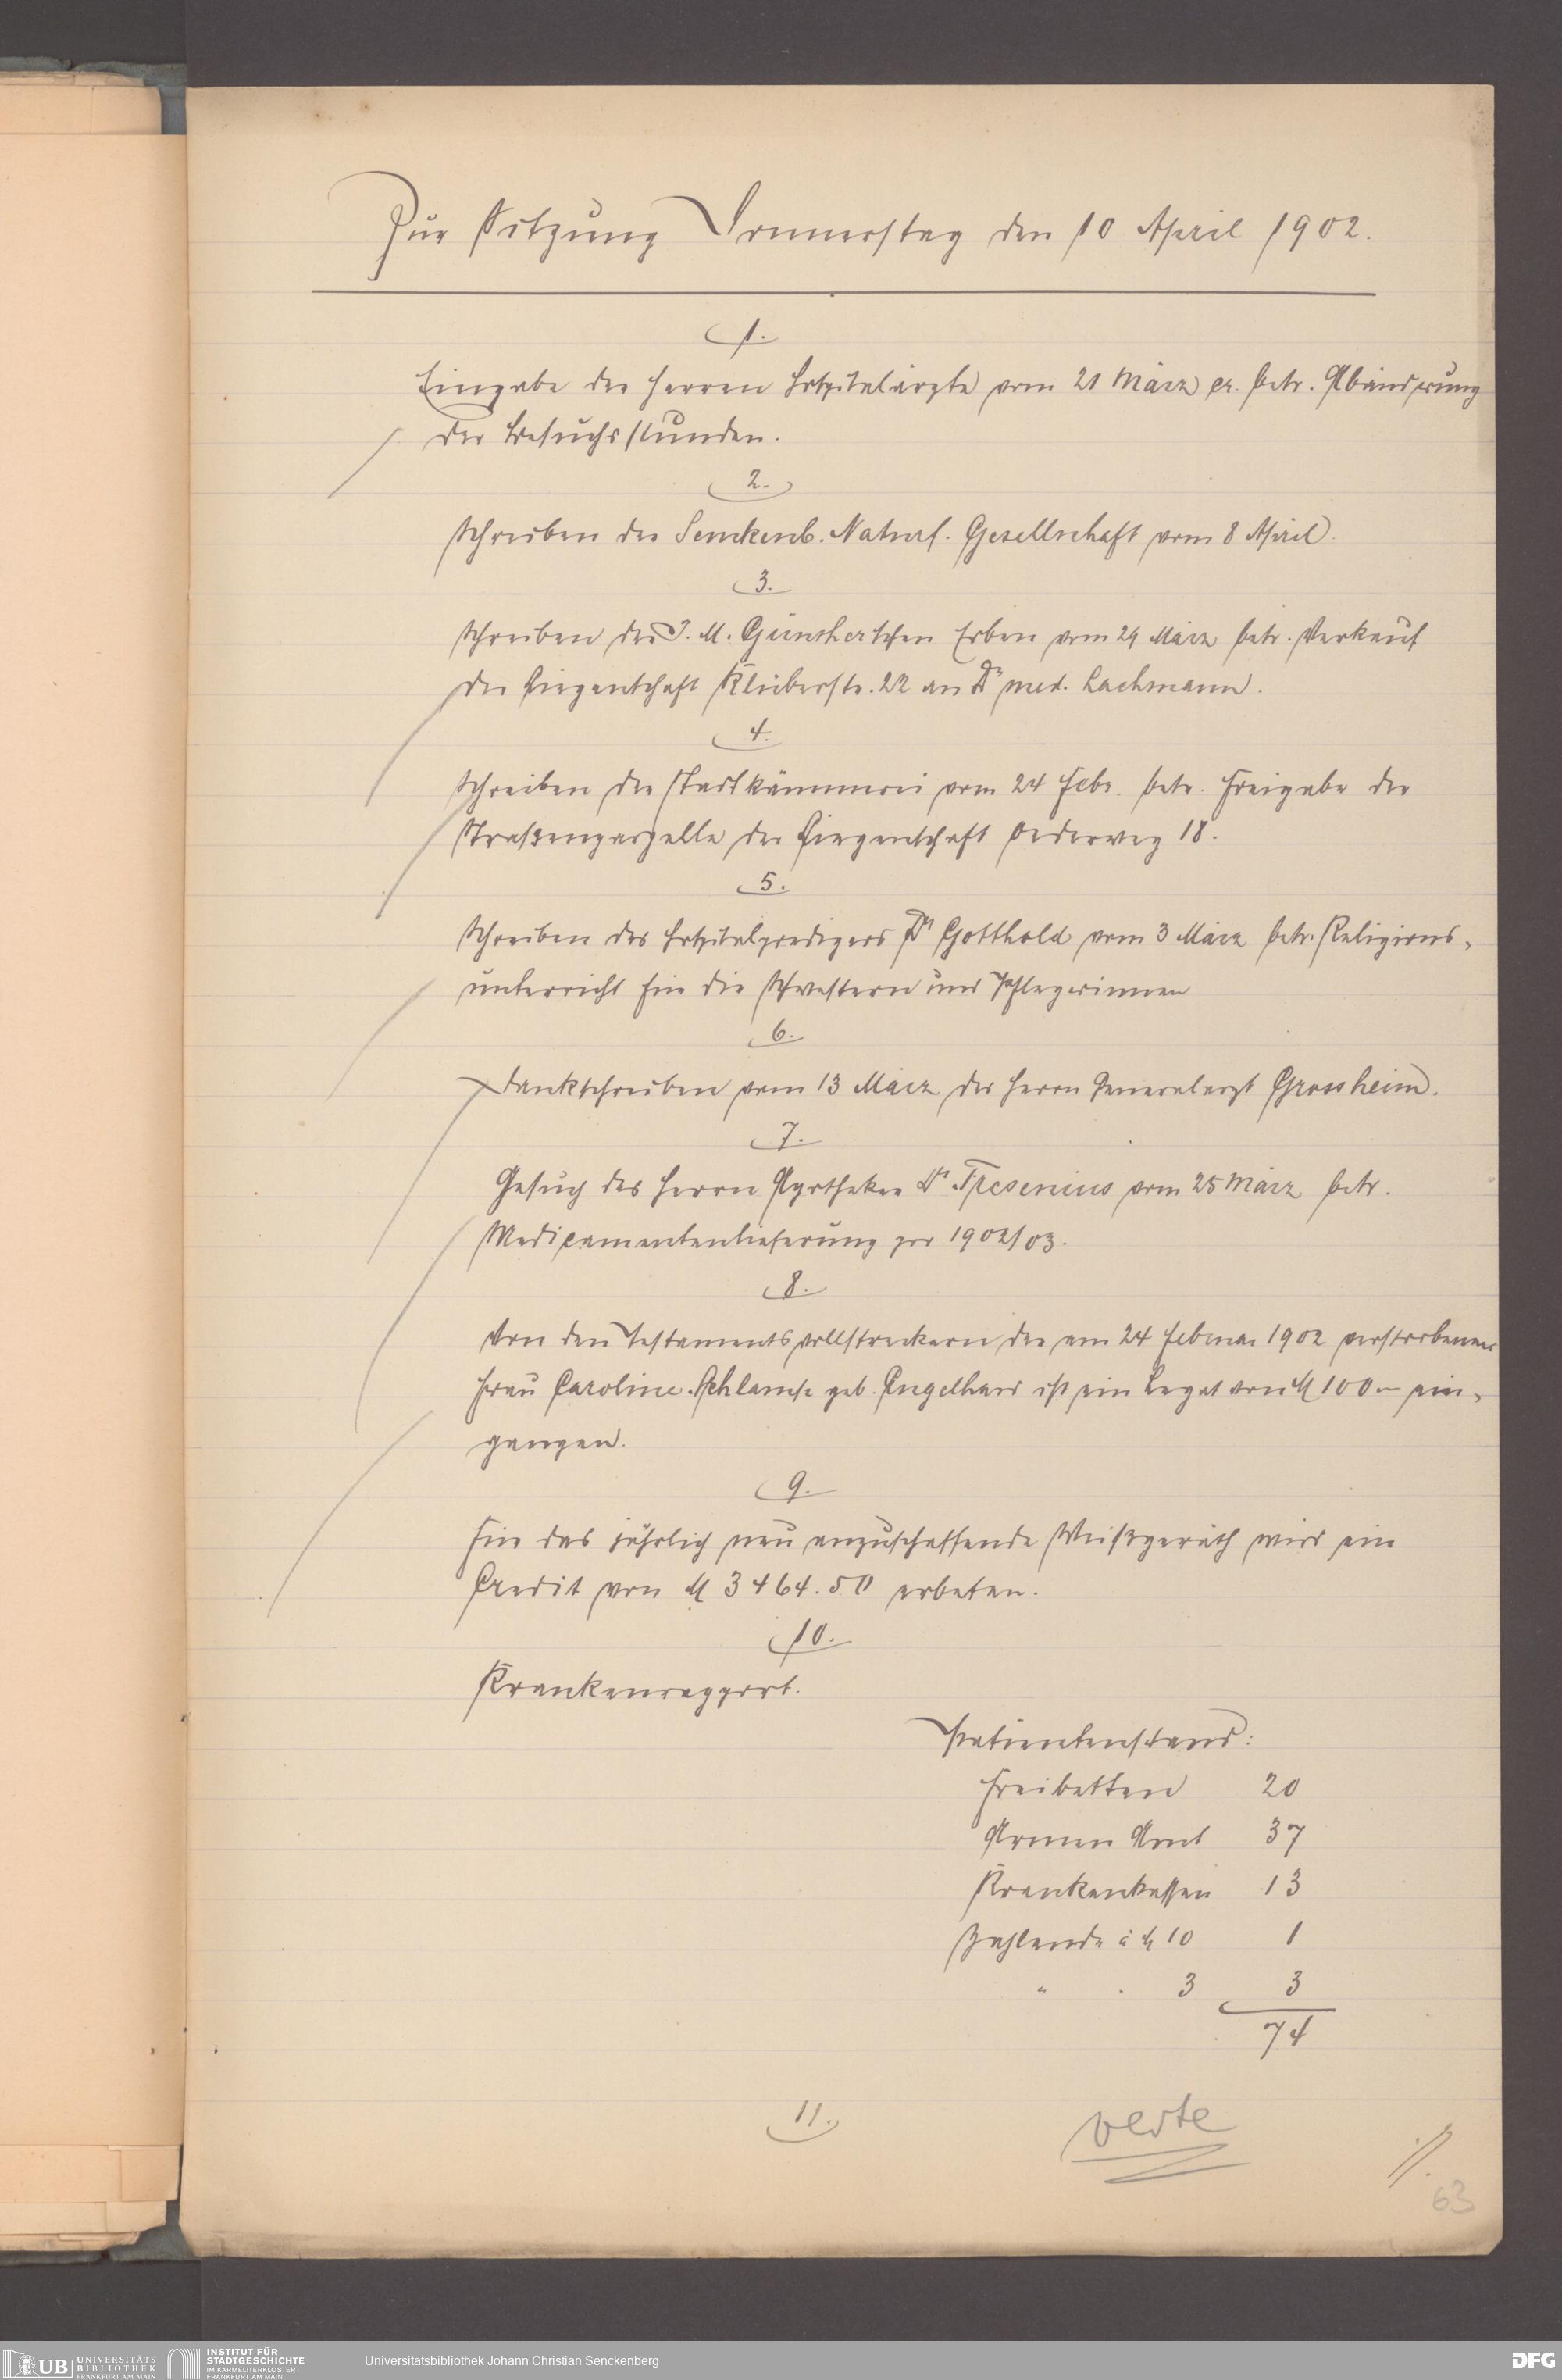 Zur Sitzung Donnerstag den 10 April 1902.
1.
Eingabe der Herren Hospitalärzte vom 21 März cr. betr. Abänderung
der Besuchsstunden.
2.
Schreiben der Senckenb. Naturf. Gesellschaft vom 8 April.
3.
Schreiben der J. M. Günther'schen Erben vom 24 März betr. Verkauf
der Liegenschaft Klüberstr. 22 an Dr med. Lachmann.
4.
Schreiben der Stadtkämmerei vom 24 Febr. betr. Freigabe der
Straßenparzelle der Liegenschaft Oederweg 18.
5.
Schreiben des Hospitalpredigers Dr Gotthold vom 3 März betr. Religions-
unterricht für die Schwestern und Pflegerinnen
6.
Dankschreiben vom 13 März des Herrn Generalarzt Grossheim.
7.
Gesuch des Herrn Apotheker Dr Fresenius vom 25 März betr.
Medicamentenlieferung pro 1902/03.
8.
Von den Testamentsvollstreckern der am 24 Februar 1902 verstorbenen
Frau Caroline geb. Engelhard ist ein Legat von M 100 – ein-
gangen.
9.
Für das jährlich neu anzuschaffende Weißgeräth wird ein
Credit von M 3464.50 erbeten.
10.
Krankenrapport.
Patientenstand:
Freibetten 20
Armen Amt 37
Krankenkassen 13
Zahlende à M 10 1
" . 3 3
74
11.
verte
63
UB UNIVERSITÄTS BIBLIOTHEK FRANKFURT AM MAIN
INSTITUT FÜR STADTGESCHICHTE IM KARMELITERKLOSTER FRANKFURT AM MAIN
Universitätsbibliothek Johann Christian Senckenberg
DFG